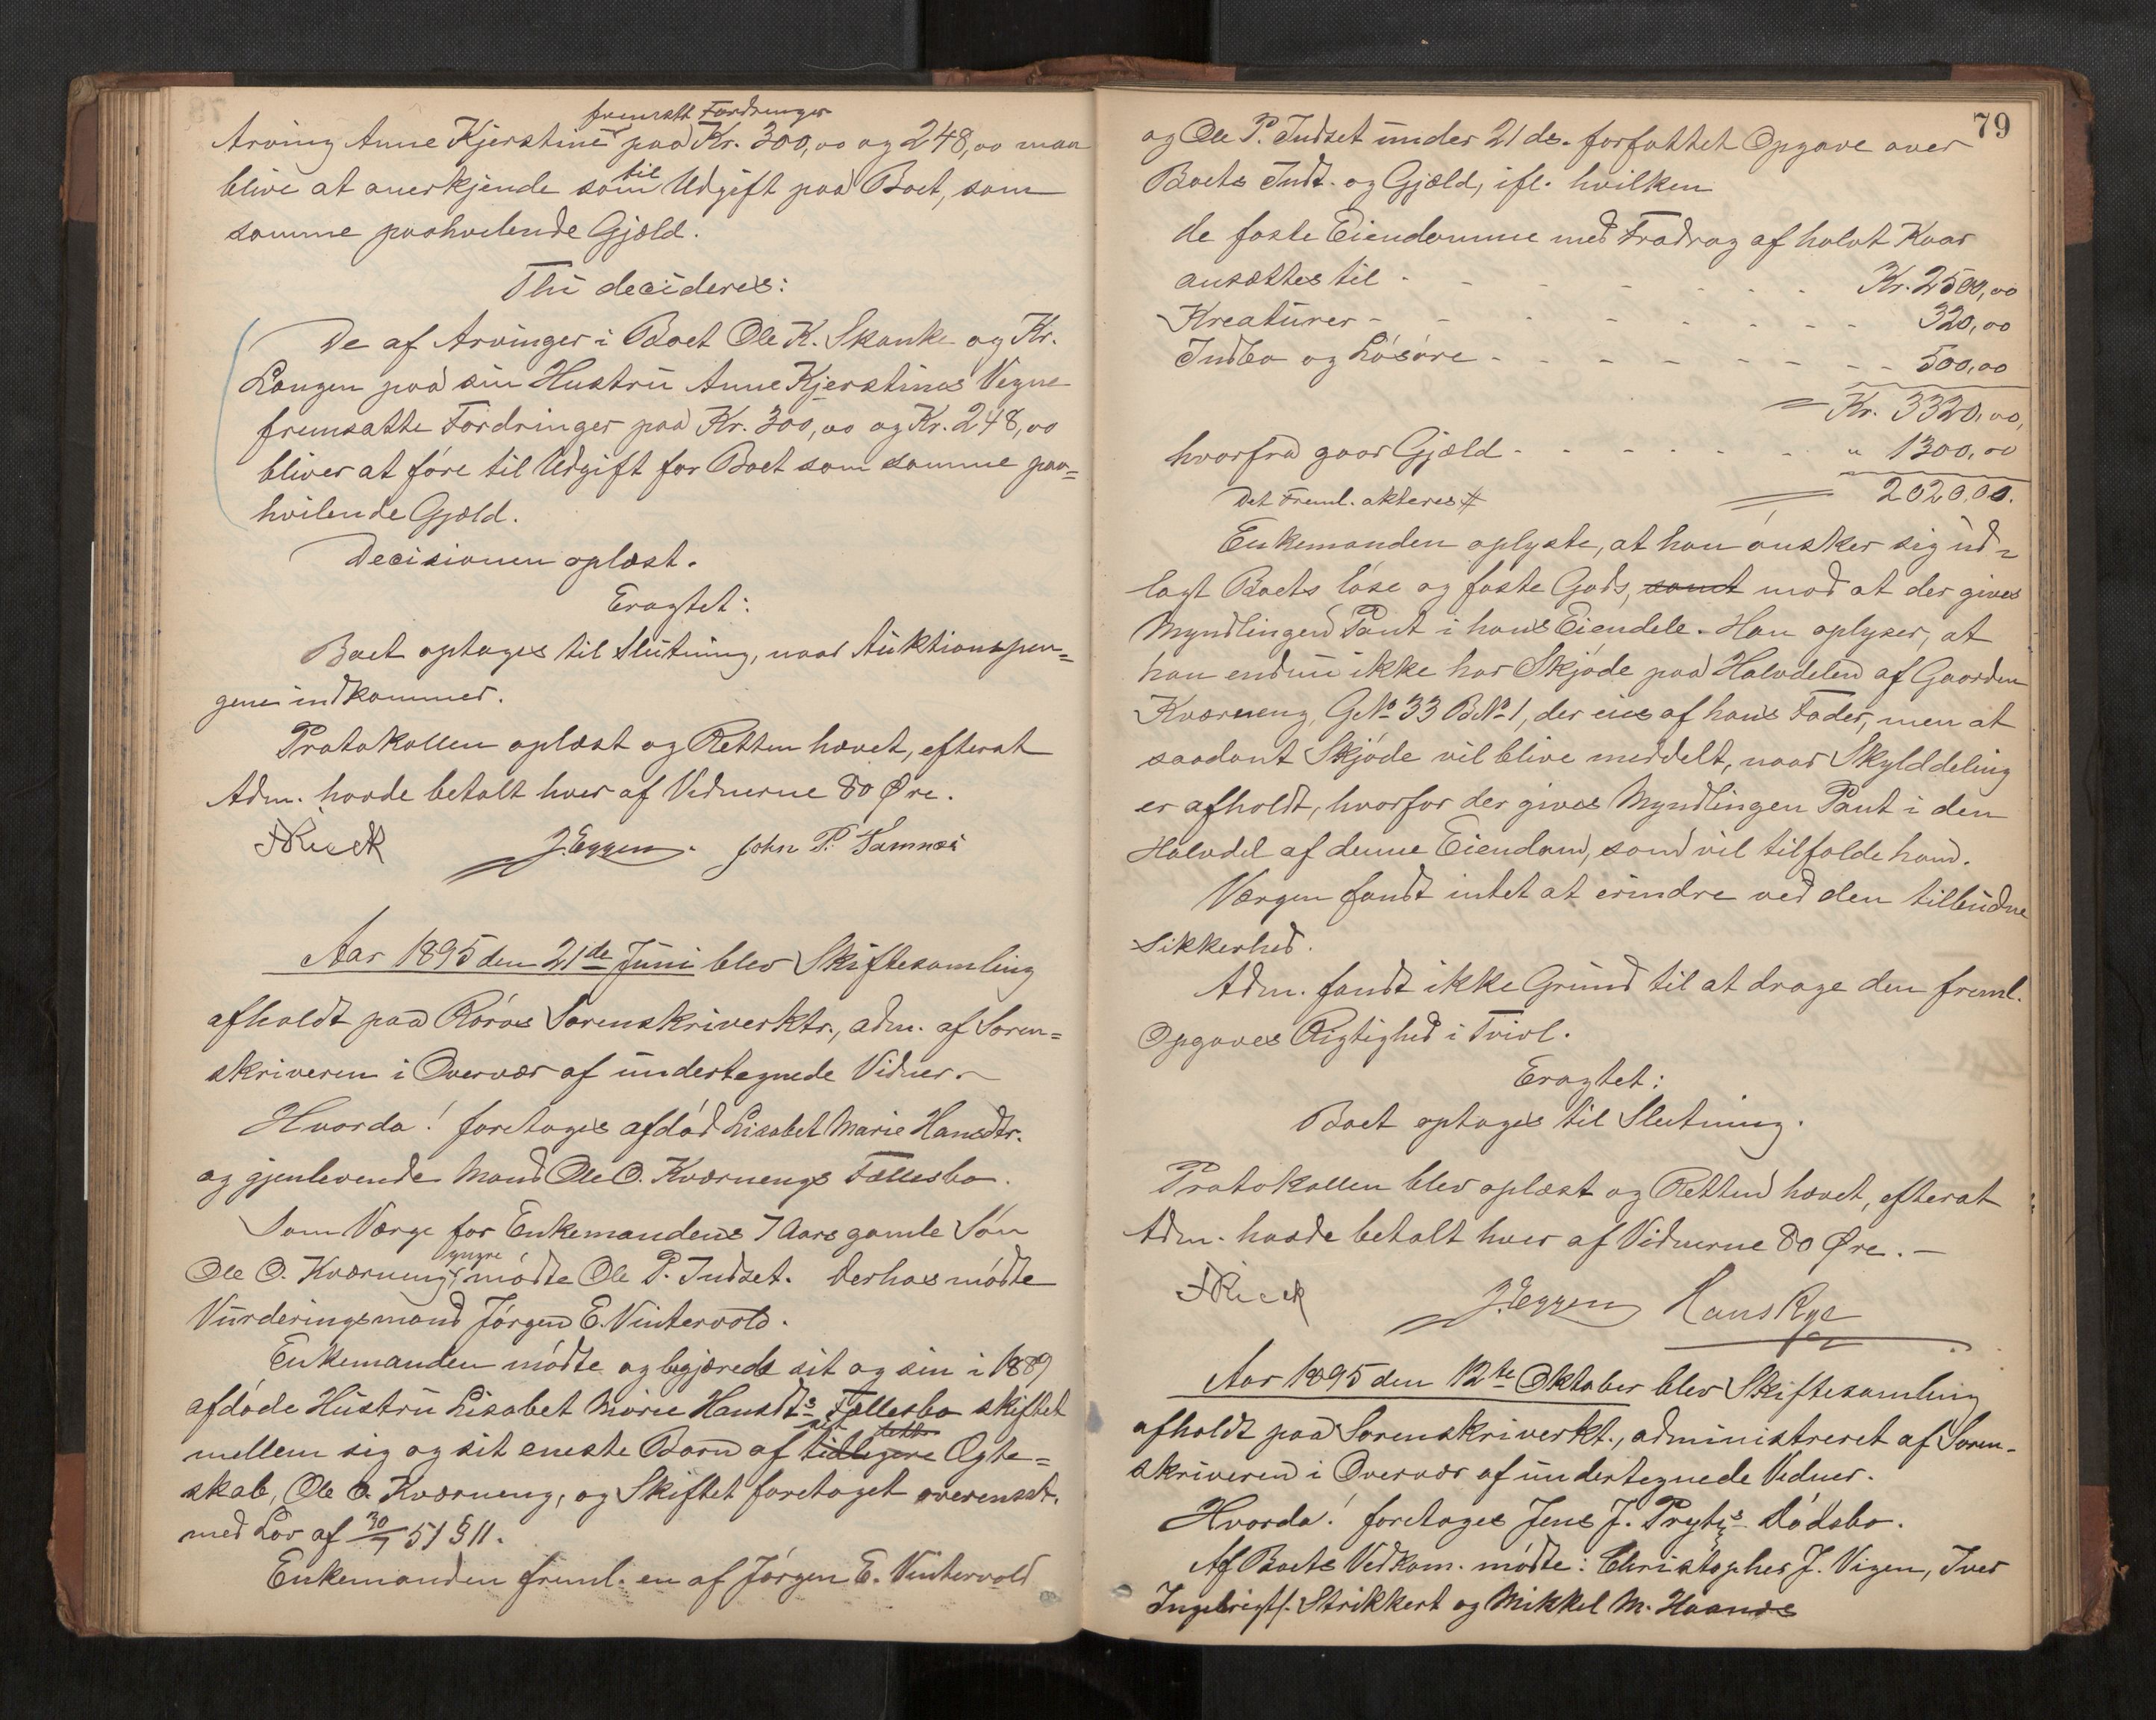 fremsatt Fordringer
Arving Anne Kjerstine paa Kr. 300,00 og 248,00 maa
blive at anerkjende som til Udgift paa Boet, som
samme paahvilende Gjæld.
Thi decideres:
De af Arvinger i Boet Ole K. Skanke og Kr.
Langen paa sin Hustru Anne Kjerstines Vegne
fremsatte Fordringer paa Kr. 300,00 og Kr. 248,00
bliver at føre til Udgift for Boet som samme paa=
hvilende Gjæld.
Decisionen oplæst.
Eragtet:
Boet optages til Slutning, naar Auktionspen=
gene indkommer.
Protokollen oplæst og Retten hævet, efterat
Adm. havde betalt hver af Vidnerne 80 Øre.
J. Eggen. John P. Samnæs
Aar 1895 den 21de Juni blev Skiftesamling
afholdt paa Røros Sorenskriverktr., adm. af Soren=
skriveren i Overvær af undertegnede Vidner.
Hvorda! foretoges afdød Lisabet Marie Hansdtr.
og gjenlevende Mand Ole O. Kværnengs Fællesbo.
Som Værge for Enkemandens 7 Aars gamle Søn
Ole O. Kværneng yngre mødte Ole P. Indset. Derhos mødte
Vurderingsmand Jørgen E. Vintervold.
Enkemanden mødte og begjærede sit og sin i 1889
afdøde Hustru Lisabet Marie Hansdts Fællesbo skiftet
mellem sig og sit eneste Barn af tidligere dette Ægte=
skab, Ole O. Kværneng, og Skiftet foretaget overensst.
med Lov af 30/7 51 § 11.
Enkemanden freml. en af Jørgen E. Vintervold
79
og Ole P. Indset under 21 ds. forfattet Opgave over
Boets Indt. og Gjæld, ifl. hvilken
de faste Eiendomme med Fradrag af halvt Kaar
ansættes til - - - - - - - Kr. 2500,00
Kreaturer - - - - - - - - - 320,00
Indbo og Løsøre - - - - - - - 500,00
= Kr. 3320,00,
hvorfra gaar Gjæld - - - - - - " 1300,00
Det Freml. akteres # = 2020,00.
Enkemanden oplyste, at han ønsker sig ud=
lagt Boets løse og faste Gods, samt mod at der gives
Myndlingen Pant i hans Eiendele. Han oplyser, at
han endnu ikke har Skjøde paa Halvdelen af Gaarden
Kværneng, GNo 33 BNo 1, der eies af hans Fader, men at
saadant Skjøde vil blive meddelt, naar Skylddeling
er afholdt, hvorfor der gives Myndlingen Pant i den
Halvdel af denne Eiendom, som vil tilfalde ham.
Værgen fandt intet at erindre ved den tilbudne
Sikkerhed.
Adm. fandt ikke Grund til at drage den freml.
Opgaves Rigtighed i Tvivl.
Eragtet:
Boet optages til Slutning.
Protokollen blev oplæst og Retten hævet, efterat
Adm. havde betalt hver af Vidnerne 80 Øre. —
J. Eggen Hans Rye
Aar 1895 den 12te Oktober blev Skiftesamling
afholdt paa Sorenskriverkt., administreret af Soren-
skriveren i Overvær af undertegnede Vidner.
Hvorda! foretoges Jens J. Prytz's Dødsbo.
Af Boets Vedkom. mødte: Christopher J. Vigen, Iver
Ingebrigts. Strikkert og Mikkel M. Haanæs